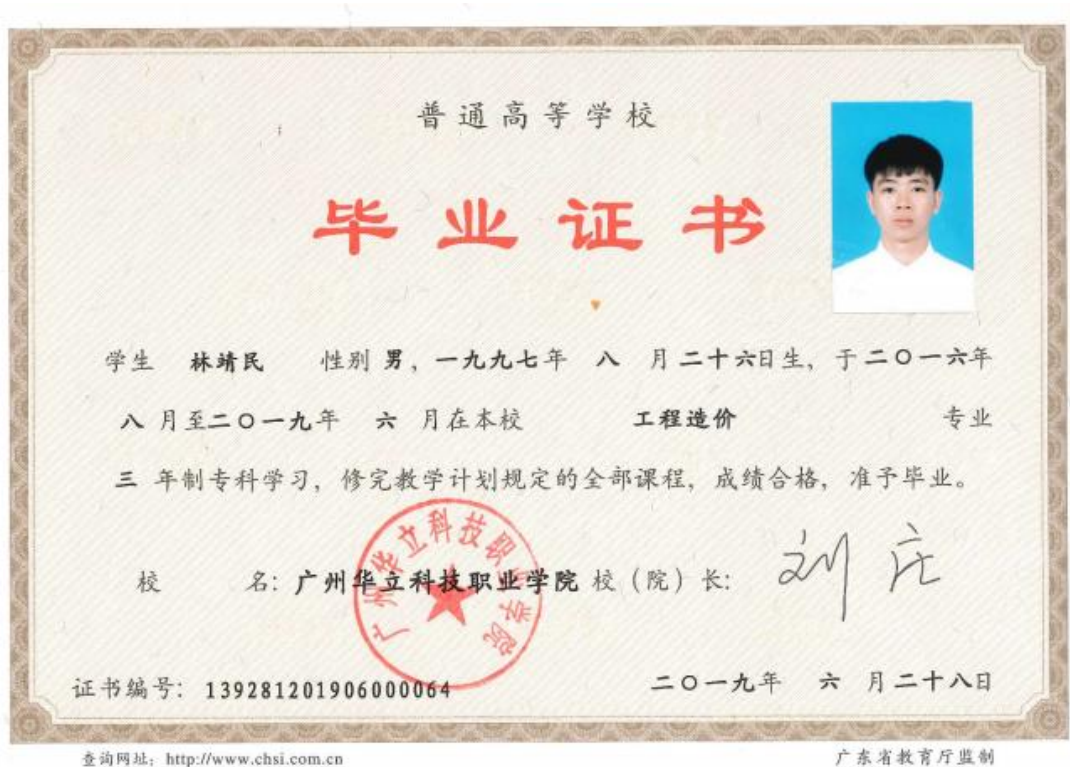 普通高等学校
毕业证书
学生 林靖民 性别 男，一九九七年 八 月二十六日生，于二〇一六年
八 月至二〇一九年 六 月在本校 工程造价 专业
三 年制专科学习，修完教学计划规定的全部课程，成绩合格，准予毕业。
校 名：广州华立科技职业学院 校（院）长：刘庄
广州华立科技职业学院
证书编号：139281201906000064 二〇一九年 六 月二十八日
查询网址：http://www.chsi.com.cn 广东省教育厅监制